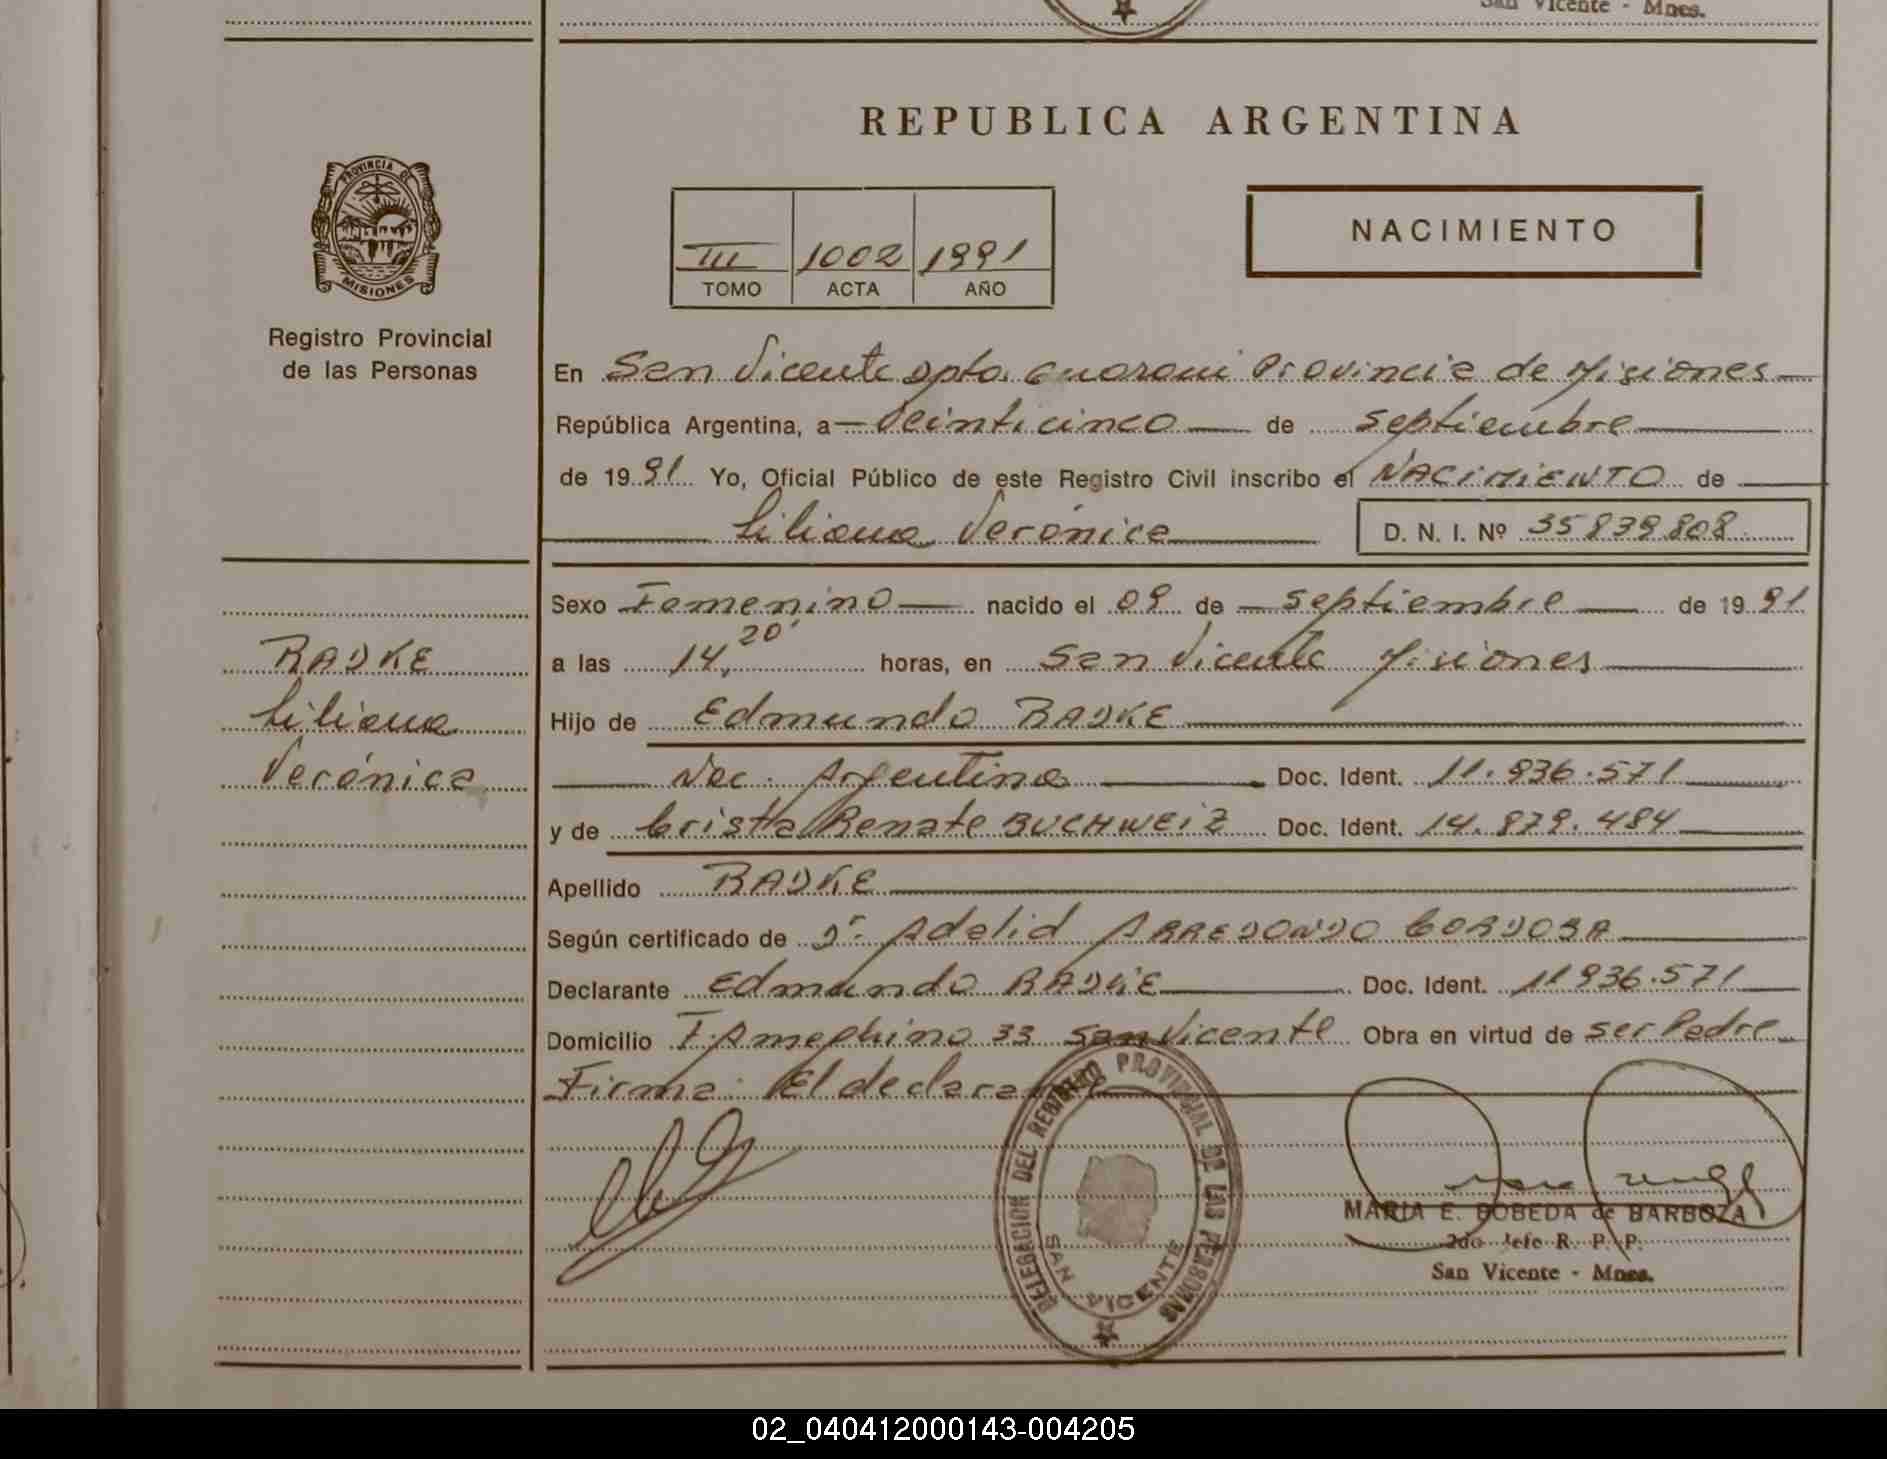 San Vicente - Mnes.
REPUBLICA ARGENTINA
PROVINCIA DE
MISIONES
Registro Provincial
de las Personas
III 1002 1991
TOMO ACTA AÑO
NACIMIENTO
En San Vicente Dpto. Guarani Provincia de Misiones
República Argentina, a Veinticinco de Septiembre
de 1991 Yo, Oficial Público de este Registro Civil inscribo el NACIMIENTO de
Liliana Verónica D. N. I. Nº 35839808
Sexo Femenino nacido el 09 de Septiembre de 1991
a las 14,20' horas, en San Vicente Misiones
Hijo de Edmundo RADKE
Nac. Argentina Doc. Ident. 11.936.571
y de Crista Renate BUCHWEIZ Doc. Ident. 14.879.484
Apellido RADKE
Según certificado de Dr. Adalid ARREDONDO CORDOBA
Declarante Edmundo RADKE Doc. Ident. 11936.571
Domicilio F. Ameghino 33 San Vicente Obra en virtud de ser Padre
Firma: El declarante
RADKE
Liliana
Verónica
DELEGACION DEL REGISTRO PROVINCIAL DE LAS PERSONAS
SAN VICENTE
MARIA E. BOBEDA de BARBOZA
2do Jefe R. P. P.
San Vicente - Mnes.
02_040412000143-004205